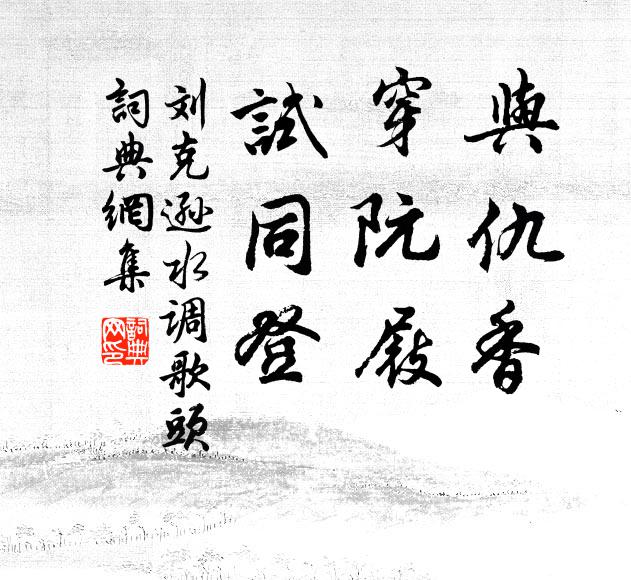 與仇香
穿阮屐
試同登
刘克逊水调歌頭
詞典網集
詞典
网印